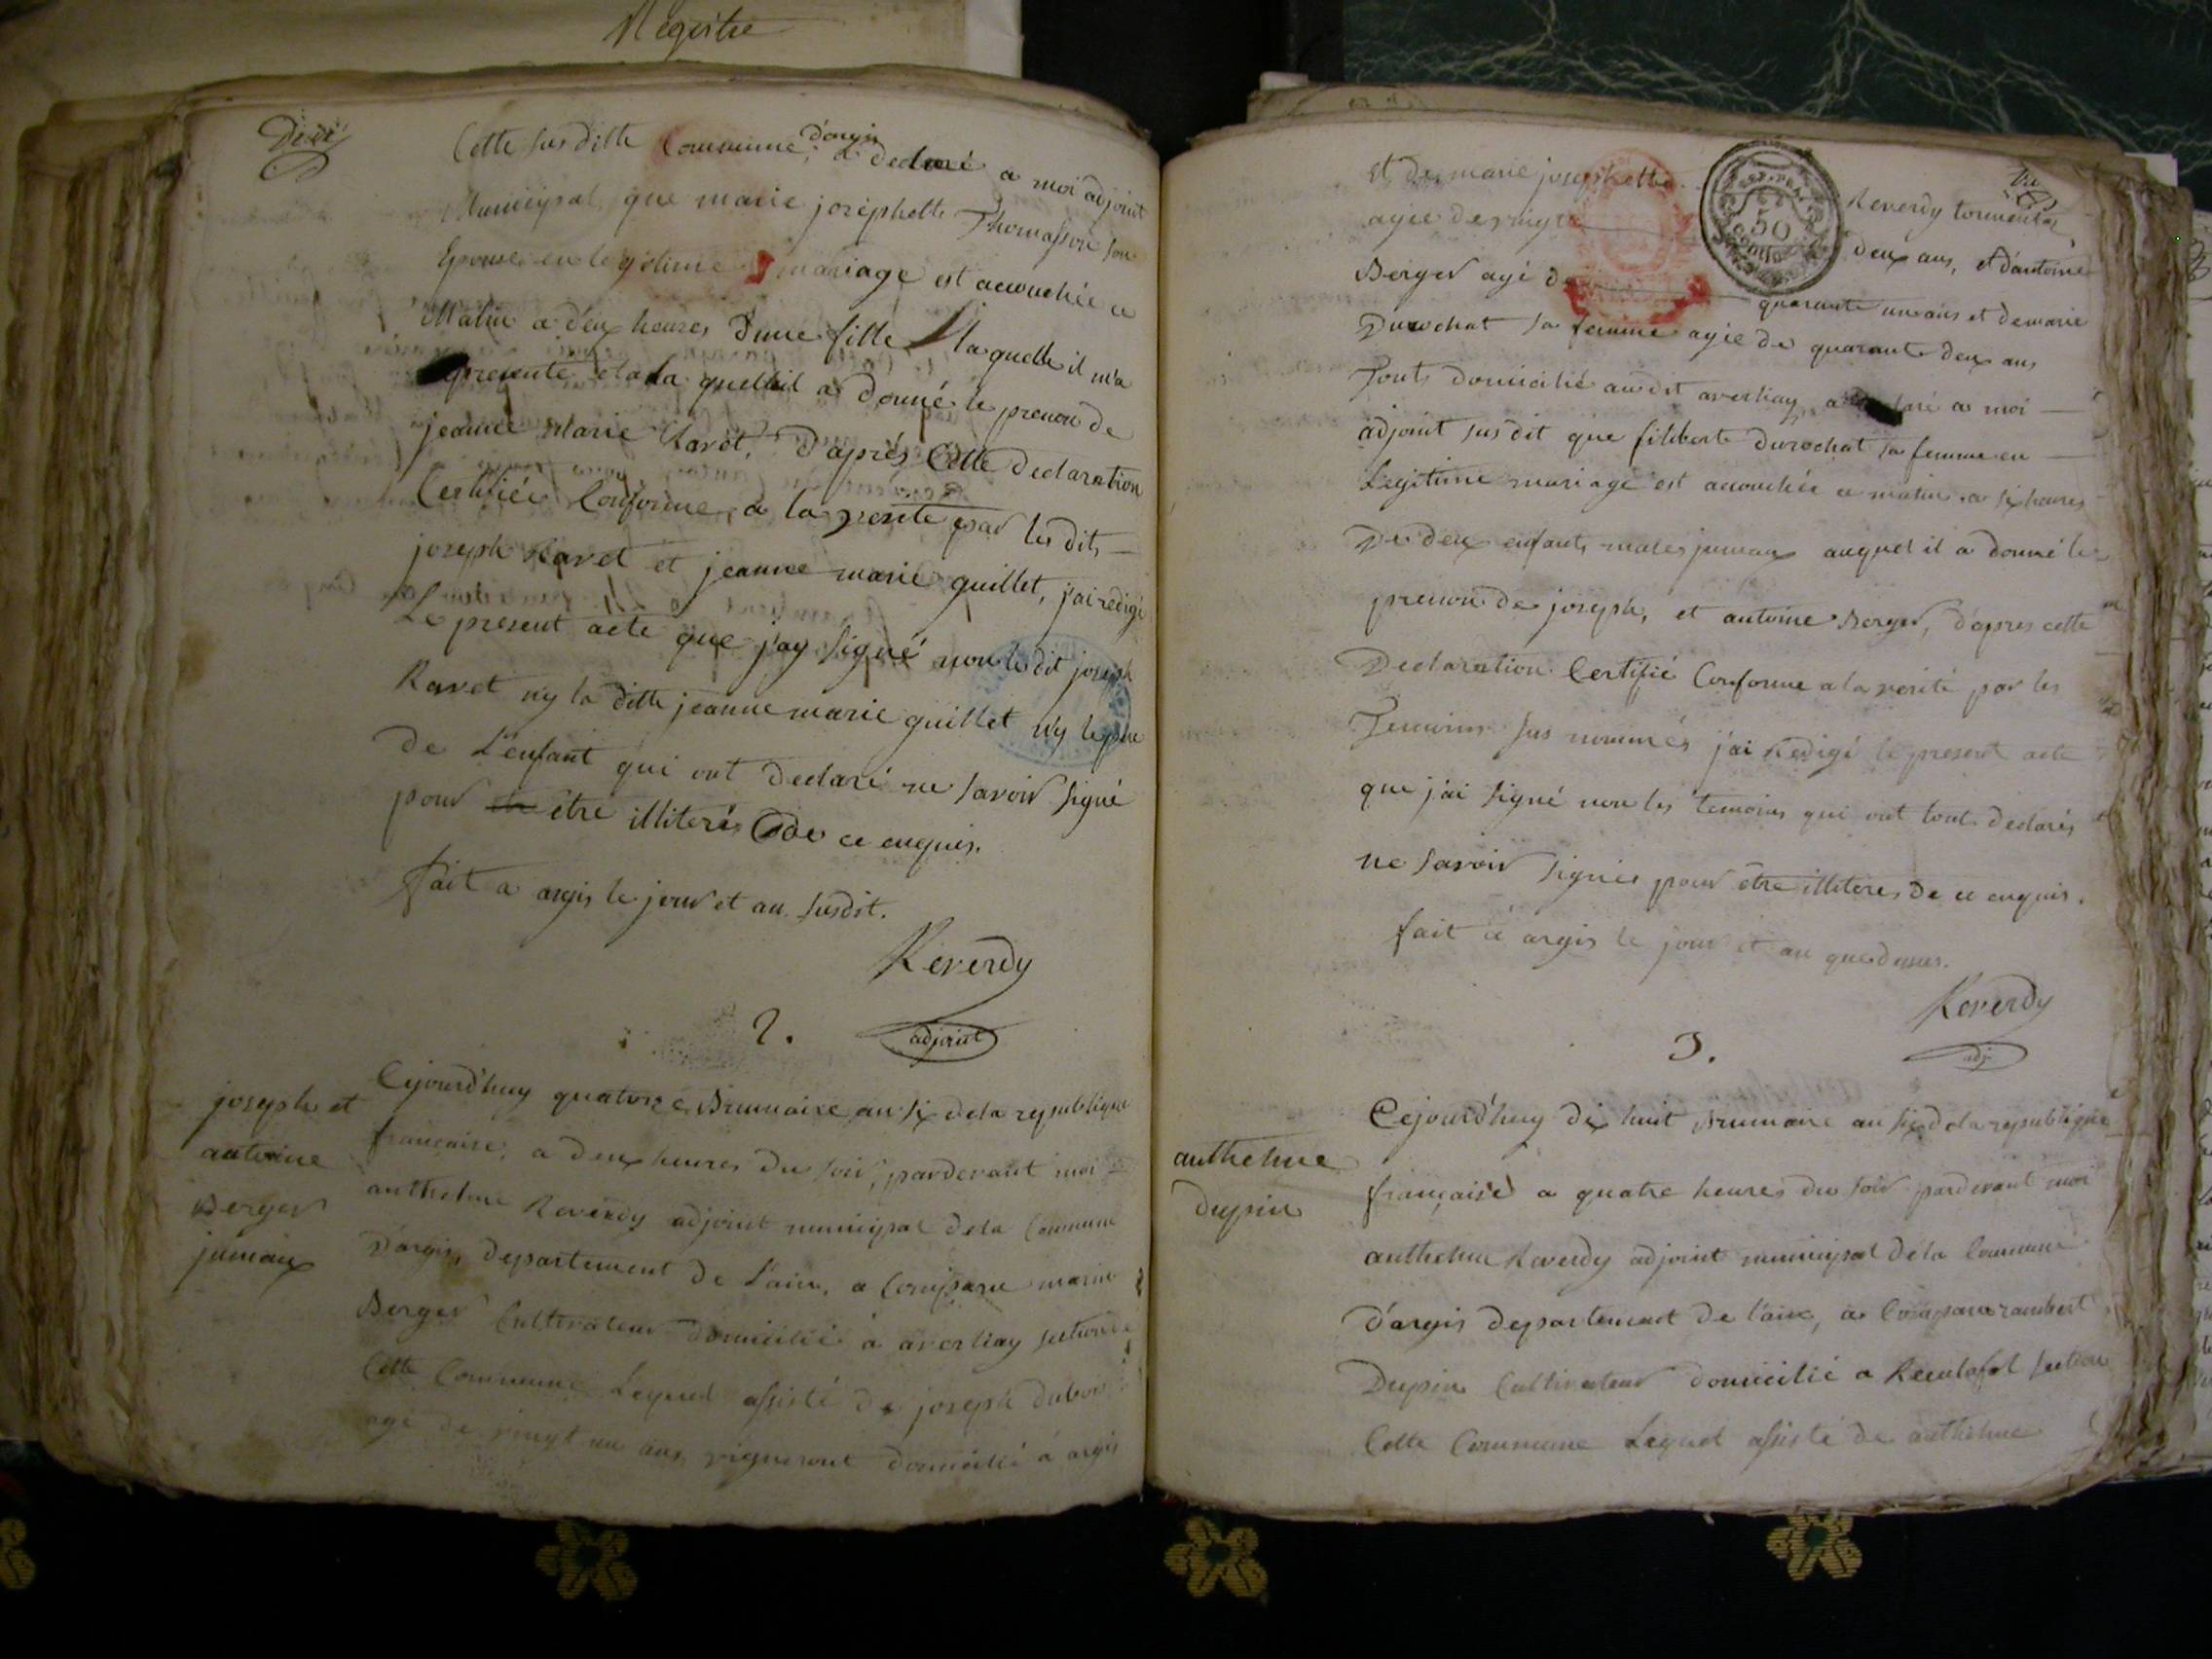 Registre
Cette susditte Commune, d'argis a declaré a moi adjoint
Municipal, que marie joséphette Thomasson son
Epouse en legitime mariage est accouchée ce
Matin a deux heures d'une fille la quelle il m'a
presenté et a la quelle il a donné le prenom de
jeanne Marie Ravet, d'après Cette declaration
Certifiée Conforme, a la verité par les dits
joseph Ravet et jeanne marie guillet, j'ai redigé
Le present acte que j'ay signé non le dit joseph
Ravet n'y la ditte jeanne marie guillet n'y le pere
de L'enfant qui ont declaré ne savoir signé
pour être illiterés de ce enquis.
fait a argis le jour et an susdit.
Reverdy
adjoint
2.
joseph et
antoine
Berger
jumaux
Cejourd'huy quatorze Brumaire an six de la republique
française, a deux heures du soir, pardevant moi
anthelme Reverdy adjoint municipal de la Commune
D'argis, departement de L'ain, a Comparu marin
Berger Cultivateur domicilié à averliay section de
Cette Commune Lequel assisté de joseph dubois
agé de vingt un ans, vigneront domicilié à argis
et de marie josephette Reverdy
agée de vingt deux ans, et d'antoine
Berger agé de quarante un ans et de marie
Durochat sa femme agée de quarante deux ans
Touts domicilié audit averliay, a moi
adjoint sus dit que filiberte Durochat sa femme en
Legitime mariage est accouchée ce matin a six heures
De deux enfants males jumaux auquel il a donné le
prenom de joseph, et antoine Berger, d'apres cette
Declaration Certifié Conforme a la verité par les
Temoins sus nommés j'ai redigé le present acte
que j'ai signé non les temoins qui ont tout declarés
ne savoir signer pour etre illiteres de ce enquis.
fait à argis le jour et an que dessus.
Reverdy
adj
50
3.
anthelme
Dupin
Cejourd'huy dix huit Brumaire an six de la republique
française a quatre heures du soir pardevant moi
anthelme Reverdy adjoint municipal de la Commune
D'argis departement de l'ain, a Comparu rambert
Dupin Cultivateur domicilié a Reculafol section
Cette Commune Lequel assisté de anthelme